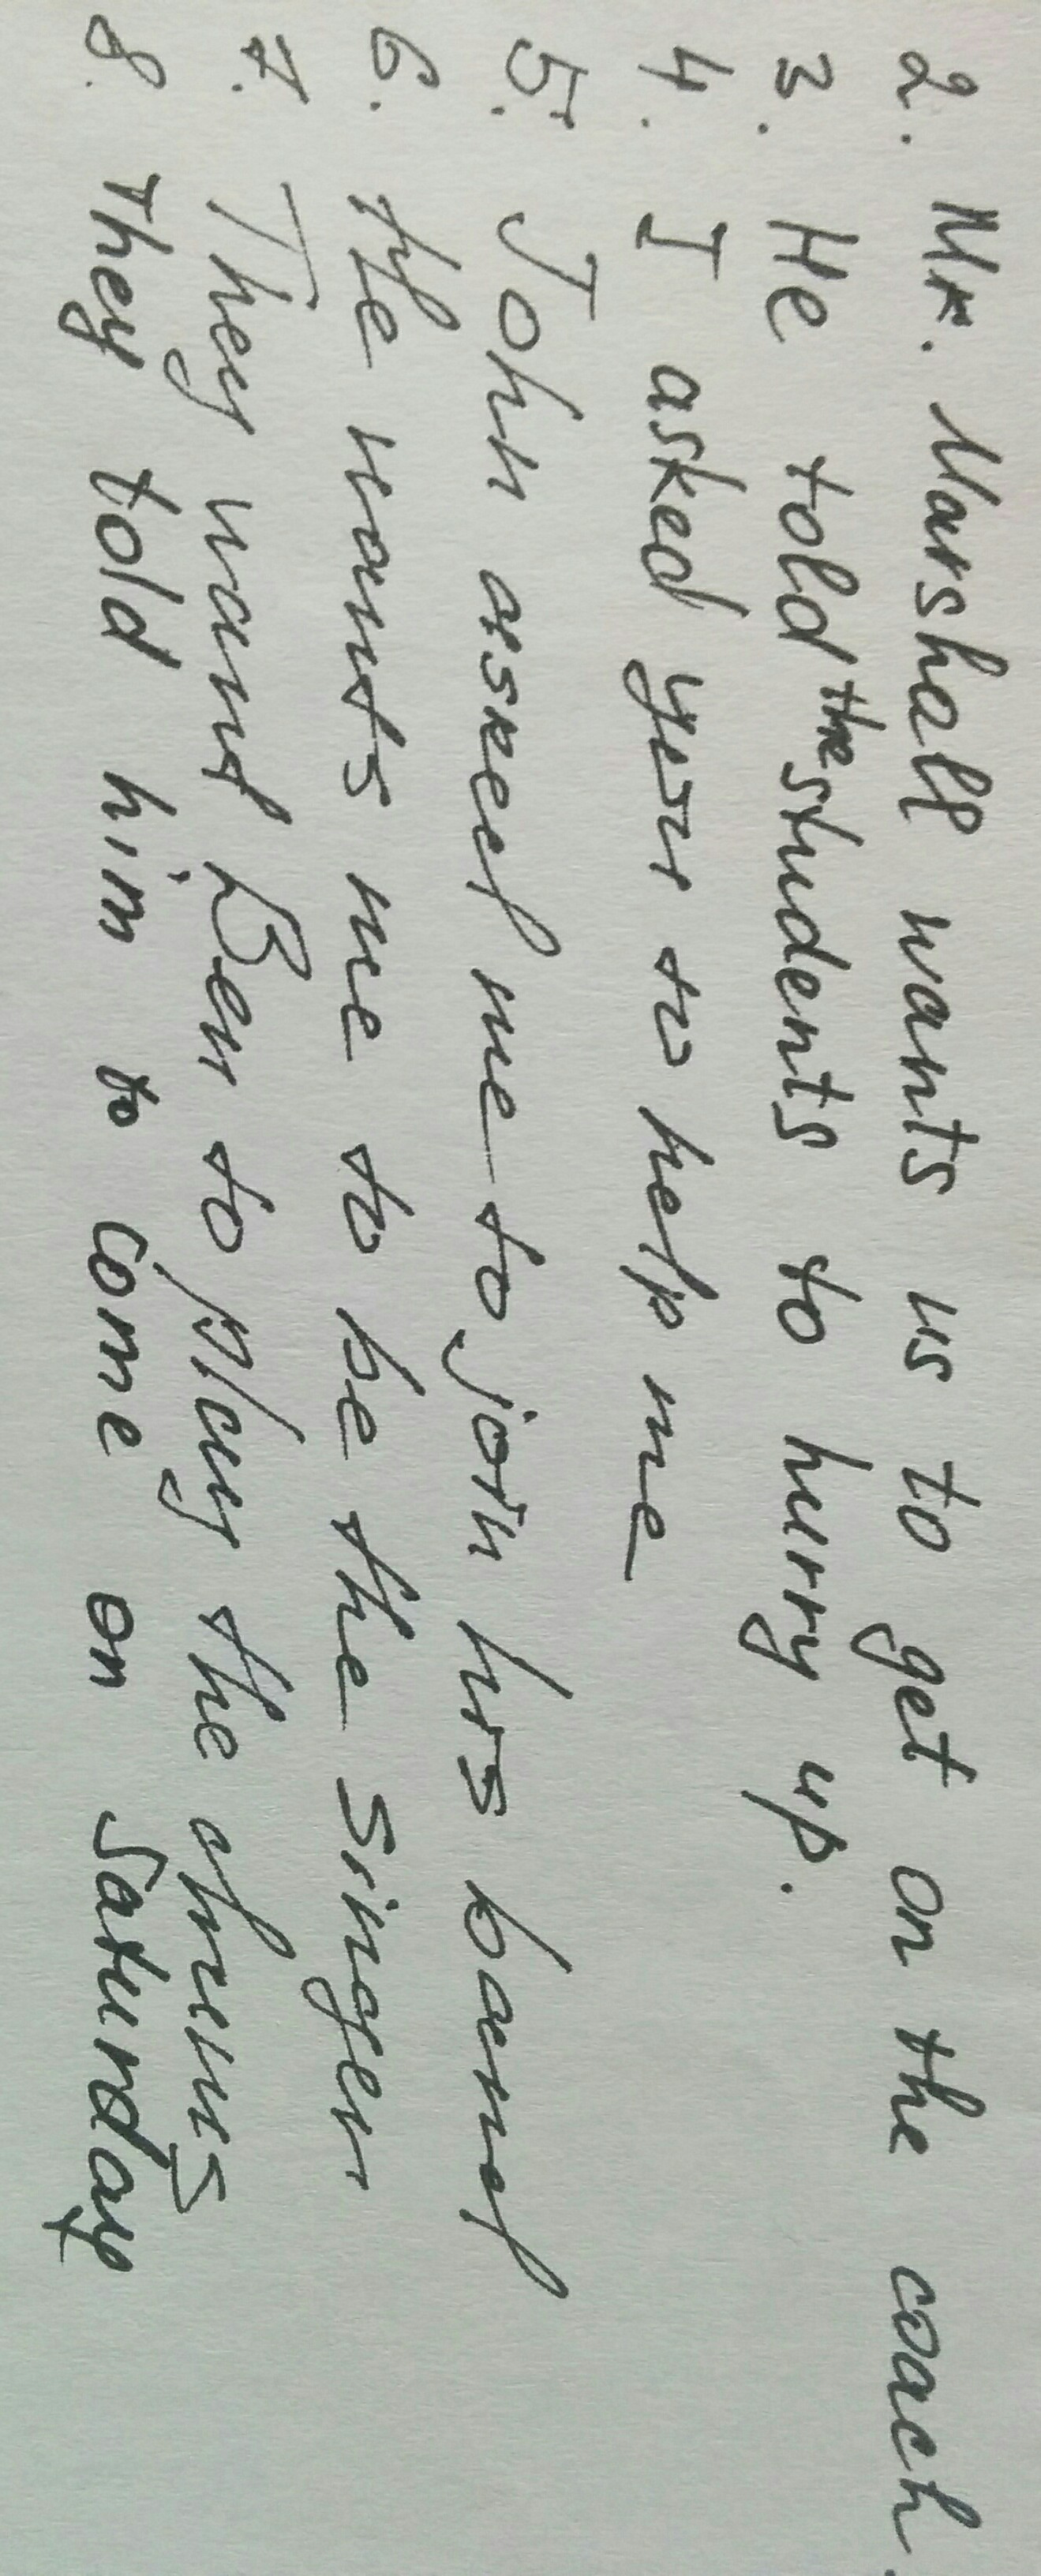 2. Mr. Marshall wants us to get on the coach.
3. He told the students to hurry up.
4. I asked your to help me
5. John asked me to join his band
6. He wants me to be the singer
7. They want Ben to play the drums
8. They told him to come on Saturday